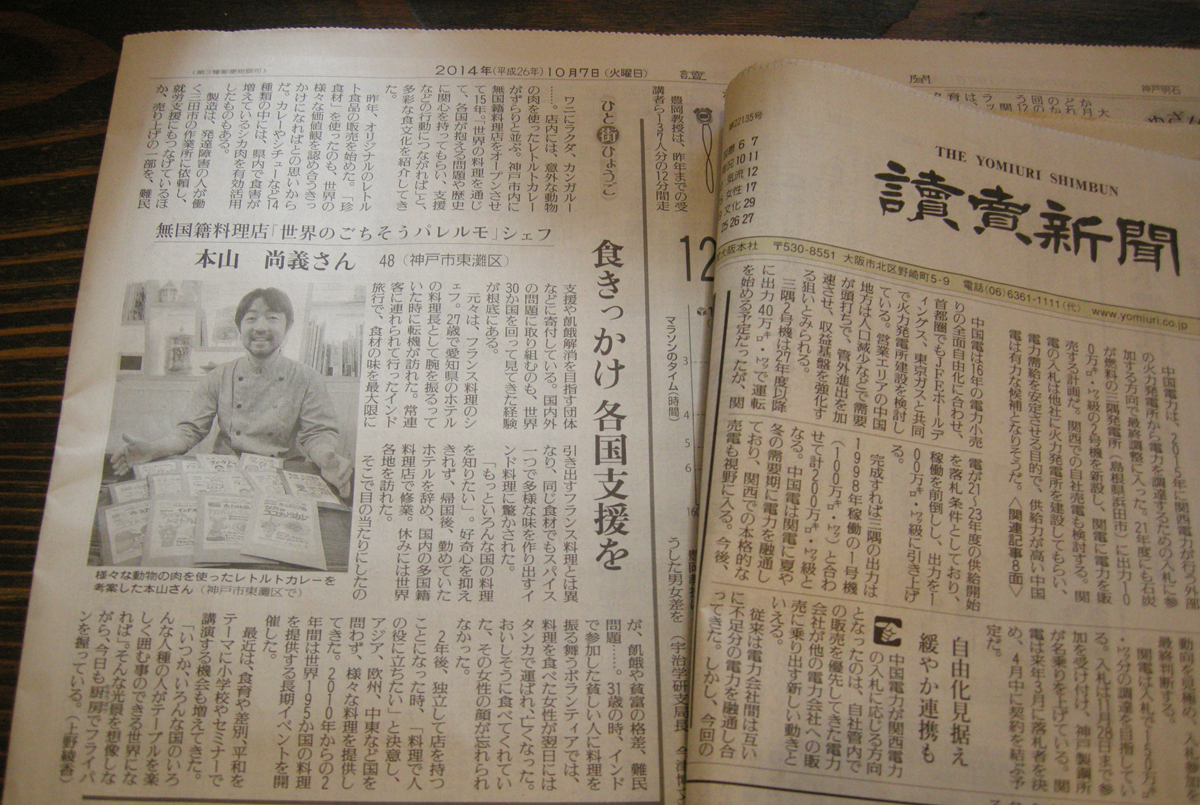 (第3種郵便物認可)
2014年(平成26年)10月7日(火曜日)
ひと街ひょうご
ワニにラクダ、カンガルー
……。店内には、意外な動物
の肉を使ったレトルトカレー
がずらりと並ぶ。神戸市内に
無国籍料理店をオープンさせ
て15年。世界の料理を通じ
て、各国が抱える問題や歴史
に関心を持ってもらい、支援
などの行動につながればと、
多彩な食文化を紹介してき
た。
昨年、オリジナルのレトル
ト食品の販売を始めた。「珍
食材」を使ったのも、世界の
様々な価値観を認め合うきっ
かけになればとの思いから
だ。カレーやシチューなど14
種類の中には、県内で食害が
増えているシカ肉を有効活用
したものもある。
製造は、発達障害の人が働
く三田市の作業所に依頼し、
就労支援にもつなげているほ
か、売り上げの一部を、難民
無国籍料理店「世界のごちそうパレルモ」シェフ
本山 尚義さん 48(神戸市東灘区)
食きっかけ 各国支援を
支援や飢餓解消を目指す団体
などに寄付している。国内外
の問題に取り組むのも、世界
30か国を回って見てきた経験
が根底にある。
元々は、フランス料理のシ
ェフ。27歳で愛知県のホテル
の料理長として腕を振るって
いた時に転機が訪れた。常連
客に連れられて行ったインド
旅行で、食材の味を最大限に
引き出すフランス料理とは異
なり、同じ食材でもスパイス
一つで多様な味を作り出すイ
ンド料理に驚かされた。
「もっといろんな国の料理
を知りたい」。好奇心を抑え
きれず、帰国後、勤めていた
ホテルを辞め、国内の多国籍
料理店で修業。休みには世界
各地を訪れた。
そこで目の当たりにしたの
が、飢餓や貧富の格差、難民
問題……。31歳の時、インド
で参加した貧しい人に料理を
振る舞うボランティアでは、
料理を食べた女性が翌日には
タンカで運ばれ、亡くなった。
おいしそうに食べてくれてい
た、その女性の顔が忘れられ
なかった。
2年後、独立して店を持つ
ことになった時、「料理で人
の役に立ちたい」と決意し、
アジア、欧州、中東など国を
問わず、様々な料理を提供し
てきた。2010年からの2
年間は世界195か国の料理
を提供する長期イベントを開
催した。
最近は、食育や差別、平和を
テーマに小学校やセミナーで
講演する機会も増えてきた。
「いつか、いろんな国のいろ
んな人種の人がテーブルを楽
しく囲む事のできる世界にな
れば」。そんな光景を想像しな
がら、今日も厨房でフライパ
ンを握っている。(上野綾香)
様々な動物の肉を使ったレトルトカレーを
考案した本山さん(神戸市東灘区で)
豊岡教授は、昨年までの受
講者ら137人分の12分間走
12
マラソンのタイム(時間)
3
4
5
6
うした男女差を
(宇治学研支局長
第22135号
6 7
10 11
12
女性 17
文化 29
25 26 27
THE YOMIURI SHIMBUN
讀賣新聞
大阪本社 〒530-8551 大阪市北区野崎町5-9 電話(06)6361-1111(代) www.yomiuri.co.jp
神戸明石
中国電力は、2015年に関西電力が行う外部
の火力発電所から電力を調達するための入札に参
加する方向で最終調整に入った。21年度にも石炭
が燃料の三隅発電所(島根県浜田市)に出力10
0万㌔・㍗級の2号機を新設し、関電に電力を販
売する計画だ。関西での自社売電も検討する。関
電の入札は他社に火力発電所を建設してもらい、
電力需給を安定させる目的で、供給力が高い中国
電は有力な候補となりそうだ。〈関連記事8面〉
中国電は16年の電力小売
りの全面自由化に合わせ、
首都圏でもJFEホールデ
ィングス、東京ガスと共同
で火力発電所建設を検討し
ている。営業エリアの中国
地方は人口減少などで需要
が頭打ちで、管外進出を加
速させ、収益基盤を強化す
る狙いとみられる。
三隅2号機は27年度以降
に出力40万㌔・㍗で運転
を始める予定だったが、関
電が21~23年度の供給開始
を落札条件としており、
稼働を前倒しし、出力を1
00万㌔・㍗級に引き上げ
る。
完成すれば三隅の出力は
1998年稼働の1号機
(100万㌔・㍗)と合わ
せて計200万㌔・㍗級と
なる。中国電は関電に夏や
冬の需要期に電力を融通し
ており、関西での本格的な
売電も視野に入る。今後、
動向を見極め、
最終判断する。
関電は入札で150万㌔
・㍗分の調達を目指してい
る。入札は11月28日まで参
加を受け付け、神戸製鋼所
が名乗りを上げている。関
電は来年3月に落札者を決
め、4月中に契約を結ぶ予
定だ。
自由化見据え
緩やか連携も
中国電力が関西電力
の入札に応じる方向
となったのは、自社管内で
の販売を優先してきた電力
会社が他の電力会社への販
売に乗り出す新しい動きと
いえる。
従来は電力会社間は互い
に不足分の電力を融通し合
ってきた。しかし、今回の